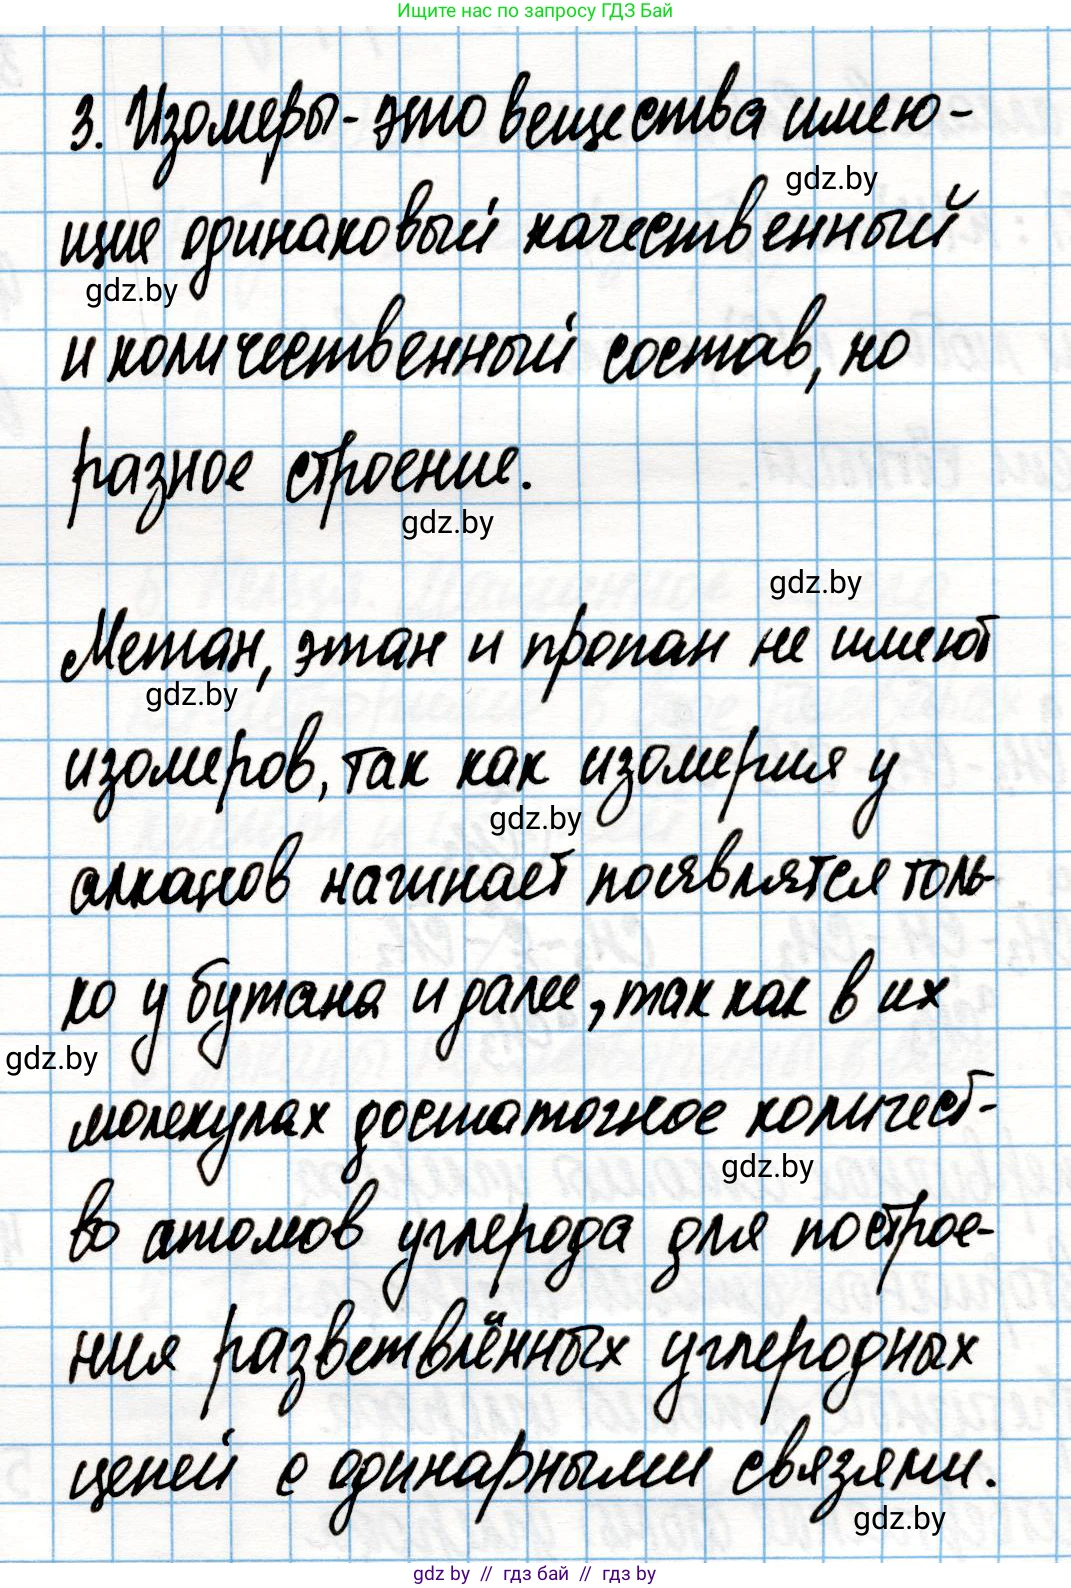 Ищите нас по запросу ГДЗ Бай
3. Изомеры - это вещества имею-
gdz.by
щие одинаковый качественный
gdz.by
и количественный состав, но
разное строение.
gdz.by
gdz.by
Метан, этан и пропан не имеют
gdz.by
изомеров, так как изомерия у
gdz.by
алканов начинает появлятся толь-
ко у бутана и далее, так как в их
gdz.by
молекулах достаточное количест-
gdz.by
во атомов углерода для построе-
ния разветвлённых углеродных
цепей с одинарными связями.
gdz.by
gdz by // гдз бай // гдз by